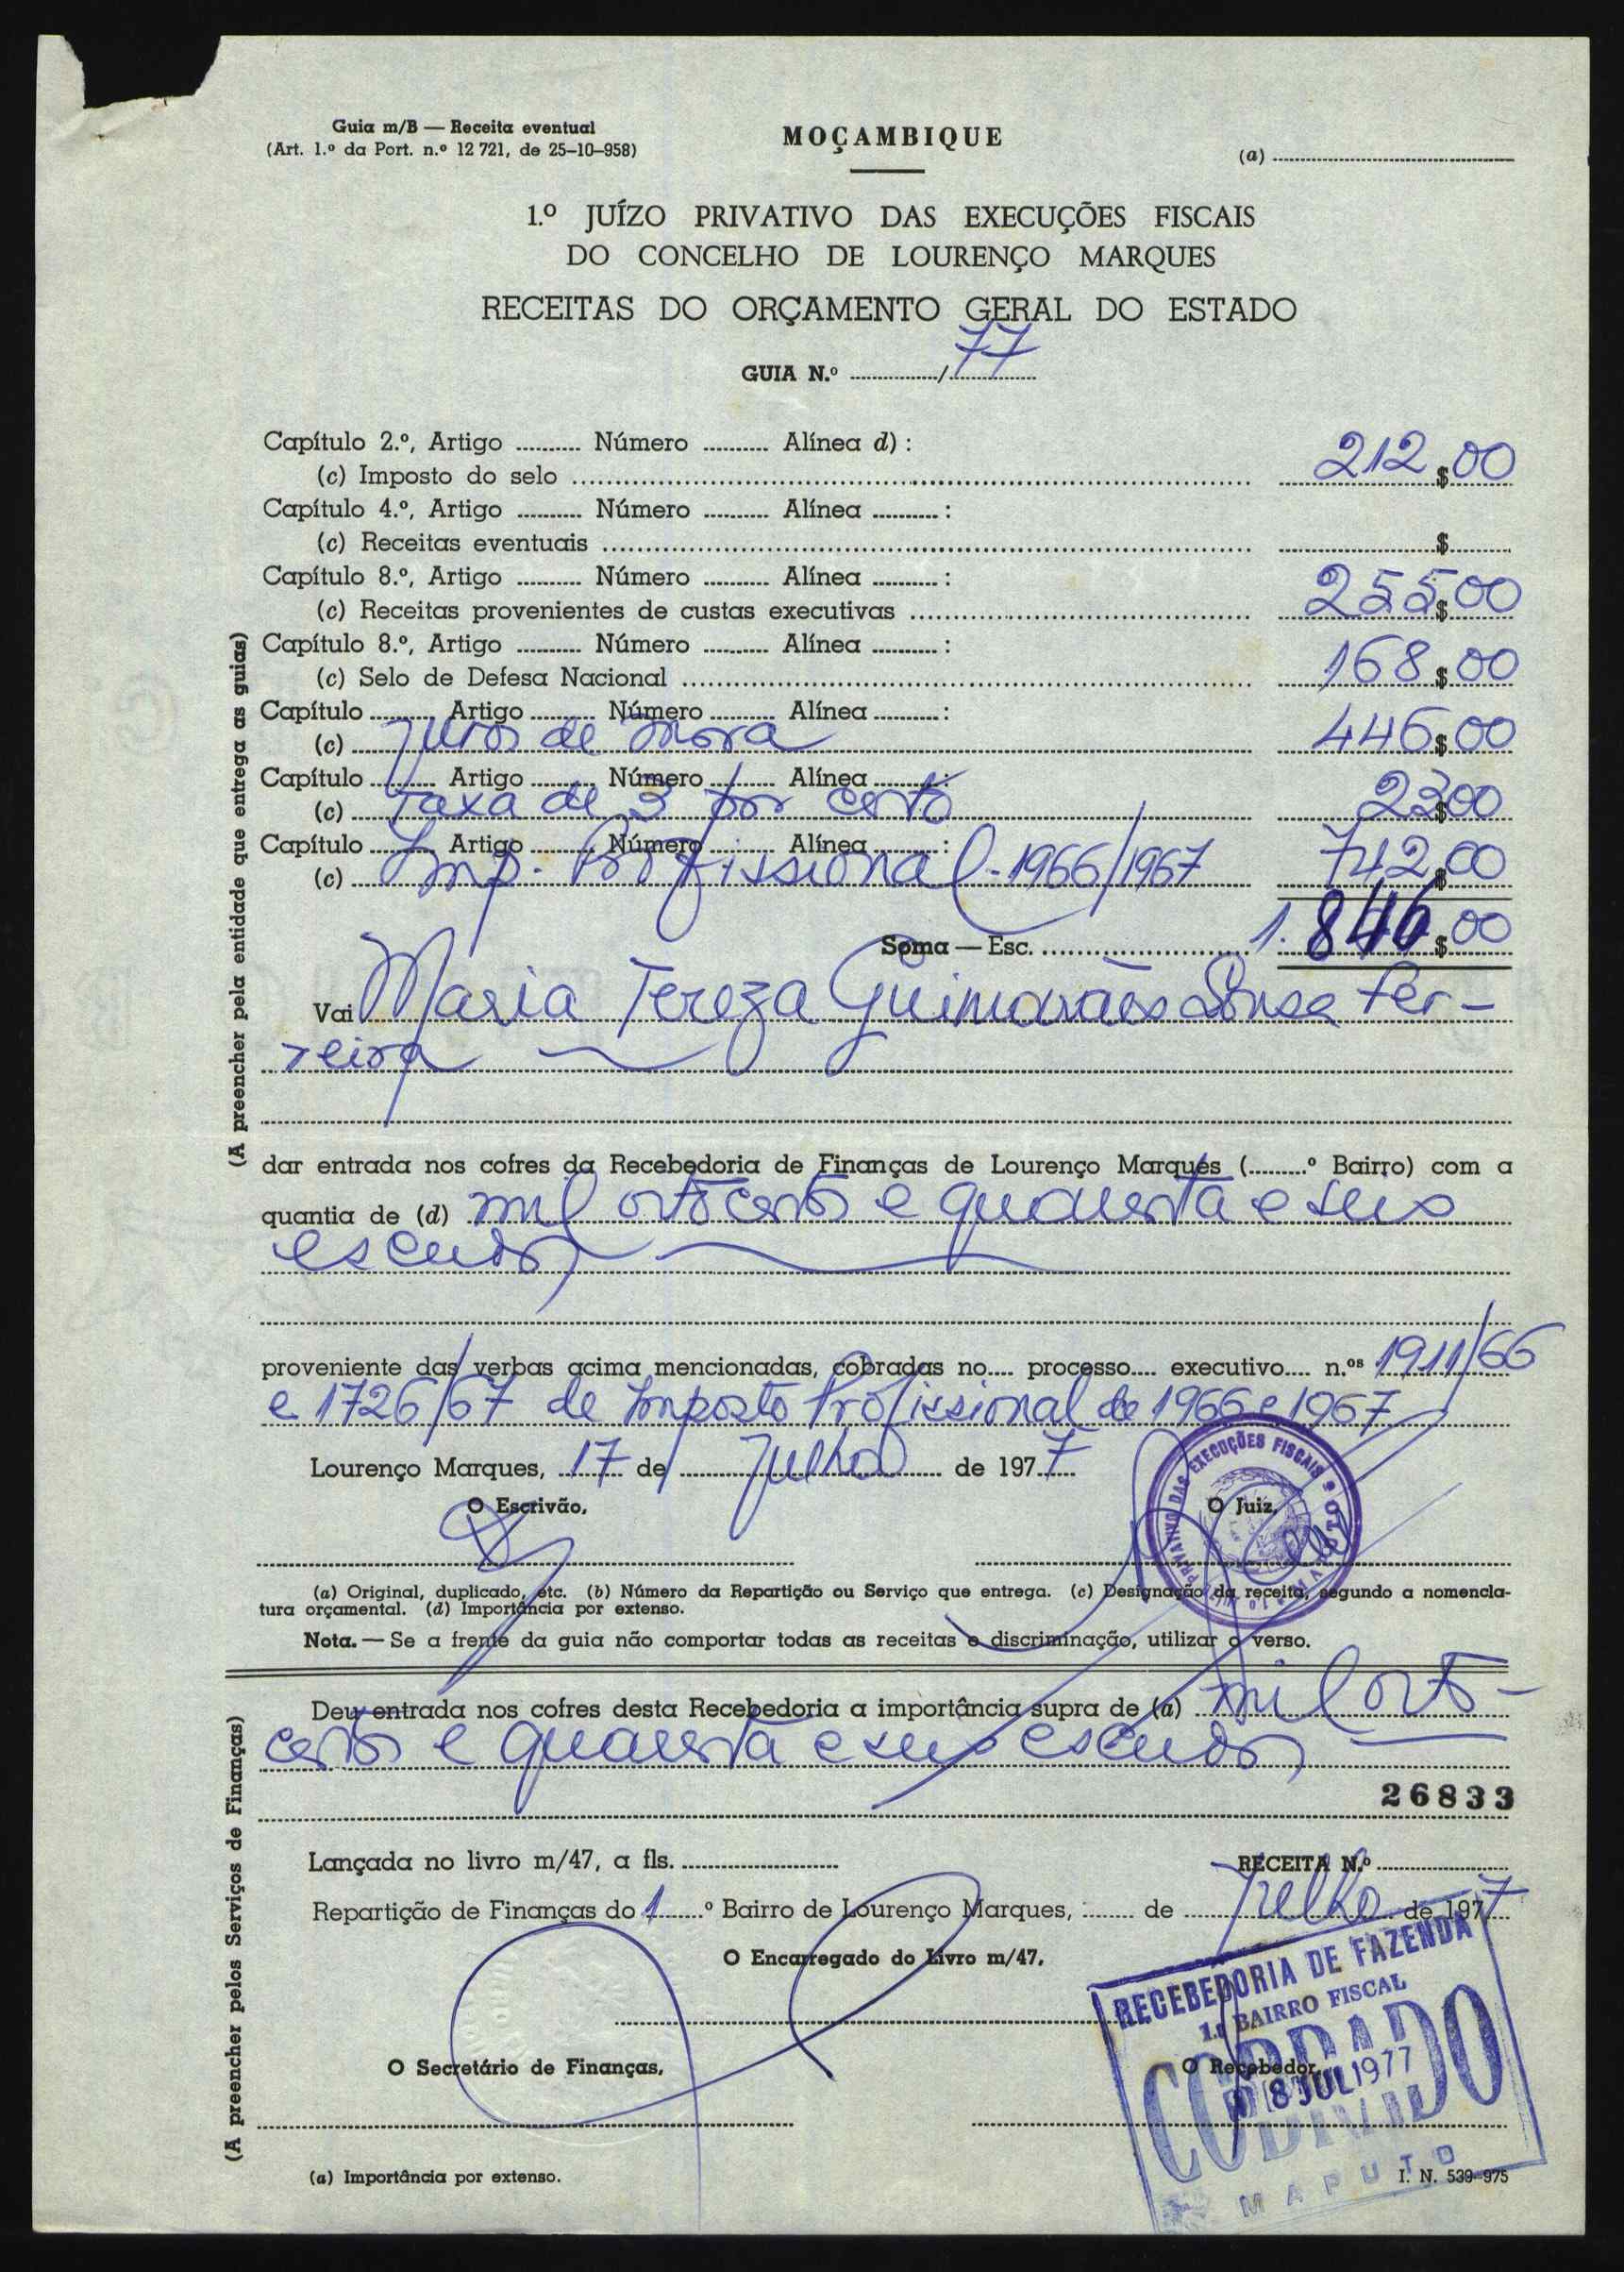 Guia m/B — Receita eventual
(Art. 1.º da Port. n.º 12 721, de 25-10-958)
MOÇAMBIQUE
(a)
1.º JUÍZO PRIVATIVO DAS EXECUÇÕES FISCAIS
DO CONCELHO DE LOURENÇO MARQUES
RECEITAS DO ORÇAMENTO GERAL DO ESTADO
GUIA N.º ........../77
Capítulo 2.º, Artigo .......... Número .......... Alínea d) :
(c) Imposto do selo 212$00
Capítulo 4.º, Artigo .......... Número .......... Alínea .......... :
(c) Receitas eventuais $
Capítulo 8.º, Artigo .......... Número .......... Alínea .......... :
(c) Receitas provenientes de custas executivas 255$00
Capítulo 8.º, Artigo .......... Número .......... Alínea .......... :
(c) Selo de Defesa Nacional 168$00
Capítulo .......... Artigo .......... Número .......... Alínea .......... :
(c) Juros de mora 446$00
Capítulo .......... Artigo .......... Número .......... Alínea .......... :
(c) Taxa de 3 por cento 23$00
Capítulo .......... Artigo .......... Número .......... Alínea .......... :
(c) Imp. Profissional - 1966/1967 742$00
Soma — Esc. 1.846$00
Vai Maria Tereza Guimarães Sousa Fer-
reira
dar entrada nos cofres da Recebedoria de Finanças de Lourenço Marques (.........º Bairro) com a
quantia de (d) mil oitocentos e quarenta e seis
escudos
proveniente das verbas acima mencionadas, cobradas no.... processo.... executivo.... n.ºs 1911/66
e 1726/67 de Imposto Profissional de 1966 e 1967
Lourenço Marques, 17 de Julho de 1977
O Escrivão,
O Juiz,
PRIVATIVO DAS EXECUÇÕES FISCAIS
(a) Original, duplicado, etc. (b) Número da Repartição ou Serviço que entrega. (c) Designação da receita, segundo a nomencla-
tura orçamental. (d) Importância por extenso.
Nota. — Se a frente da guia não comportar todas as receitas e discriminação, utilizar o verso.
(A preencher pela entidade que entrega as guias)
Deu entrada nos cofres desta Recebedoria a importância supra de (a) mil oito-
centos e quarenta e seis escudos
26833
Lançada no livro m/47, a fls.
RECEITA N.º
Repartição de Finanças do 1.º Bairro de Lourenço Marques, ........ de Julho de 1977
O Encarregado do Livro m/47,
RECEBEDORIA DE FAZENDA
1.º BAIRRO FISCAL
COBRADO
O Secretário de Finanças,
O Recebedor,
8 JUL 1977
MAPUTO
(a) Importância por extenso.
I. N. 539-975
(A preencher pelos Serviços de Finanças)